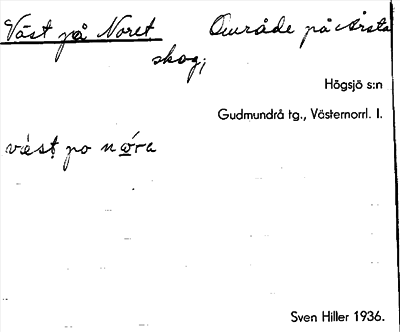 Väst på Noret Område på Årsta
skog;
Högsjö s:n
Gudmundrå tg., Västernorrl. l.
vä́st po nǿra
Sven Hiller 1936.